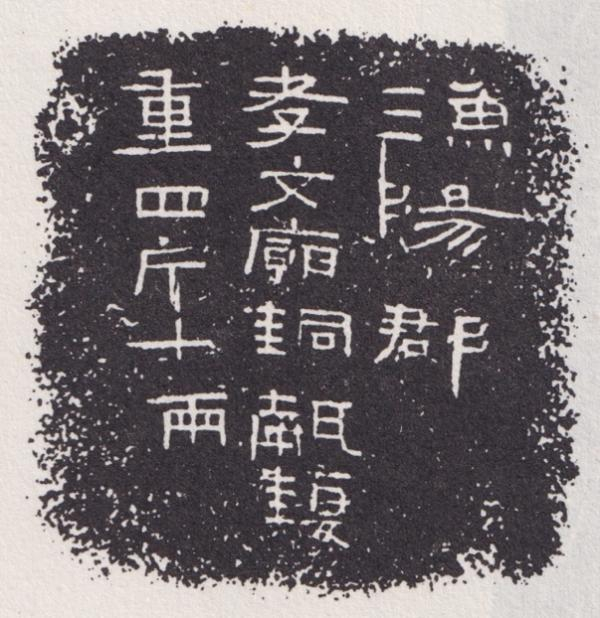 漁陽郡
孝文廟銅甗鍑
重四斤十兩